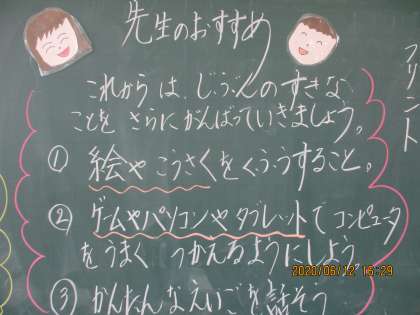 先生のおすすめ
これからは、じぶんのすきな
ことを さらにがんばっていきましょう。
① 絵や こうさくをくふうすること。
② ゲームやパソコンやタブレットで コンピュータ
をうまく つかえるようにしよう。
③ かんたんなえいごを話そう
プリント
2020/06/12 16:29